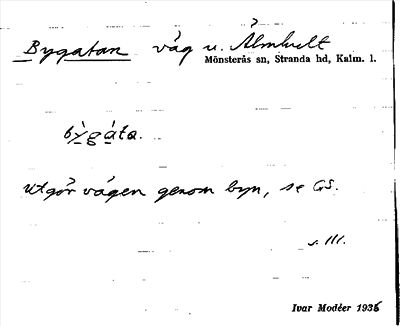 Bygatan väg u. Älmhult
Mönsterås sn, Stranda hd, Kalm. l.
by̌gáta.
utgör vägen genom byn, se GS.
s. 111.
Ivar Modéer 1936